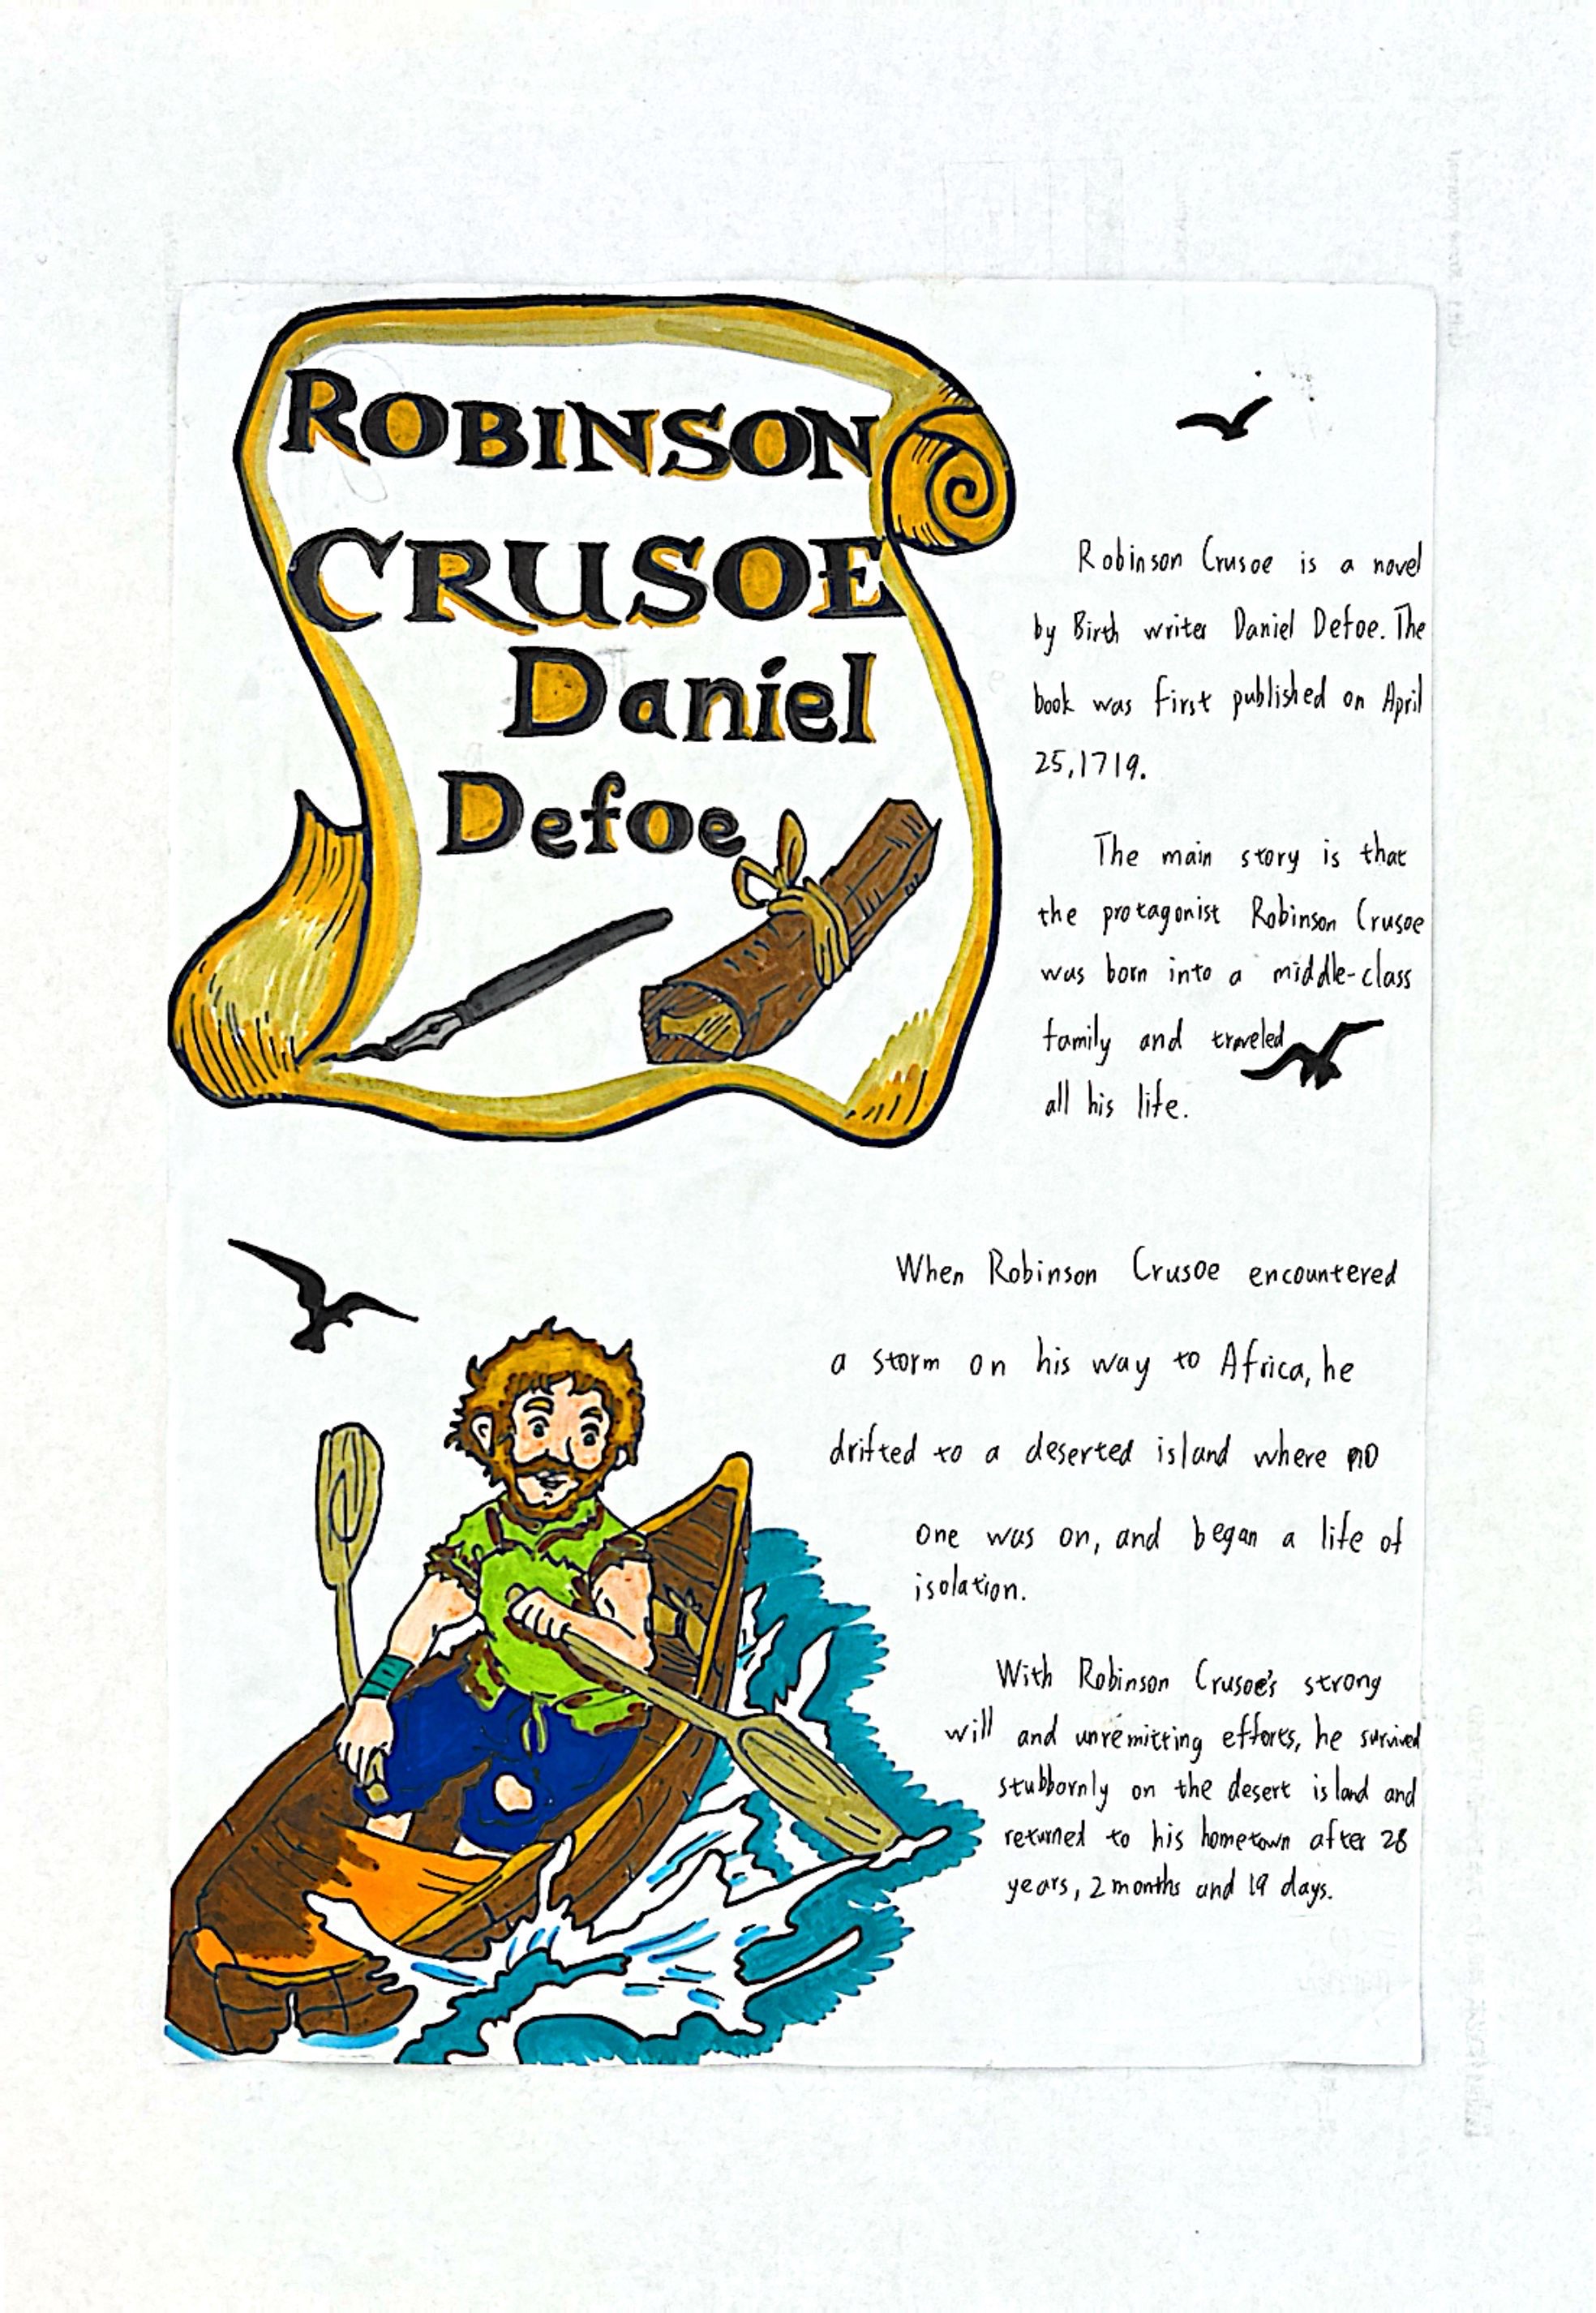 ROBINSON
CRUSOE
Daniel
Defoe
Robinson Crusoe is a novel
by Birth writer Daniel Defoe. The
book was first published on April
25,1719.
The main story is that
the protagonist Robinson Crusoe
was born into a middle-class
family and traveled
all his life.
When Robinson Crusoe encountered
a storm on his way to Africa, he
drifted to a deserted island where no
one was on, and began a life of
isolation.
With Robinson Crusoe's strong
will and unremitting efforts, he survived
stubbornly on the desert island and
returned to his hometown after 28
years, 2 months and 19 days.